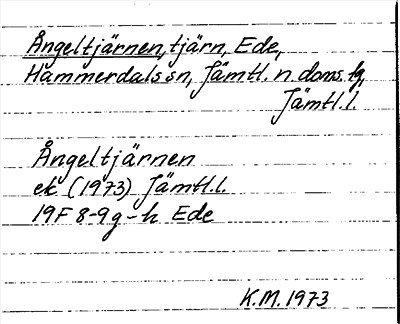 Ångeltjärnen, tjärn, Ede,
Hammerdals sn, Jämtl. n doms. tg,
Jämtl. l.
Ångeltjärnen
ek (1973) Jämtl. l.
19F 8-9 g-h Ede
K.M. 1973